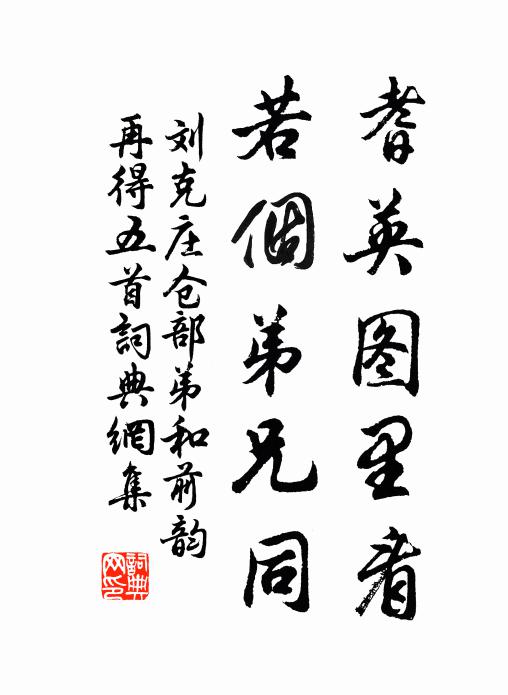 耆英图里看
若個弟兄同
刘克庄仓部弟和前韵
再得五首詞典網集
詞典网印